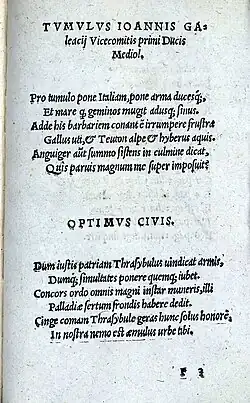 TVMVLVS IOANNIS GA-
leacij Vicecomitis primi Ducis
Mediol.
Pro tumulo pone Italiam, pone arma ducesq́;
Et mare q, geminos mugit adusq; sinus.
Adde his barbariem conantẽ irrumpere frustra
Gallus uti, & Teuton alpe & hyberus aquis.
Anguiger aũt summo sistens in culmine dicat,
Quis paruis magnum me super imposuit?
OPTIMVS CIVIS.
Dum iustis patriam Thrasybulus uindicat armis,
Dumq; simultates ponere quemq; iubet.
Concors ordo omnis magni instar muneris, illi
Palladiæ sertum frondis habere dedit.
Cinge comam Thrasybule geras hunc solus honorẽ,
In nostra nemo est æmulus urbe tibi.
F 3